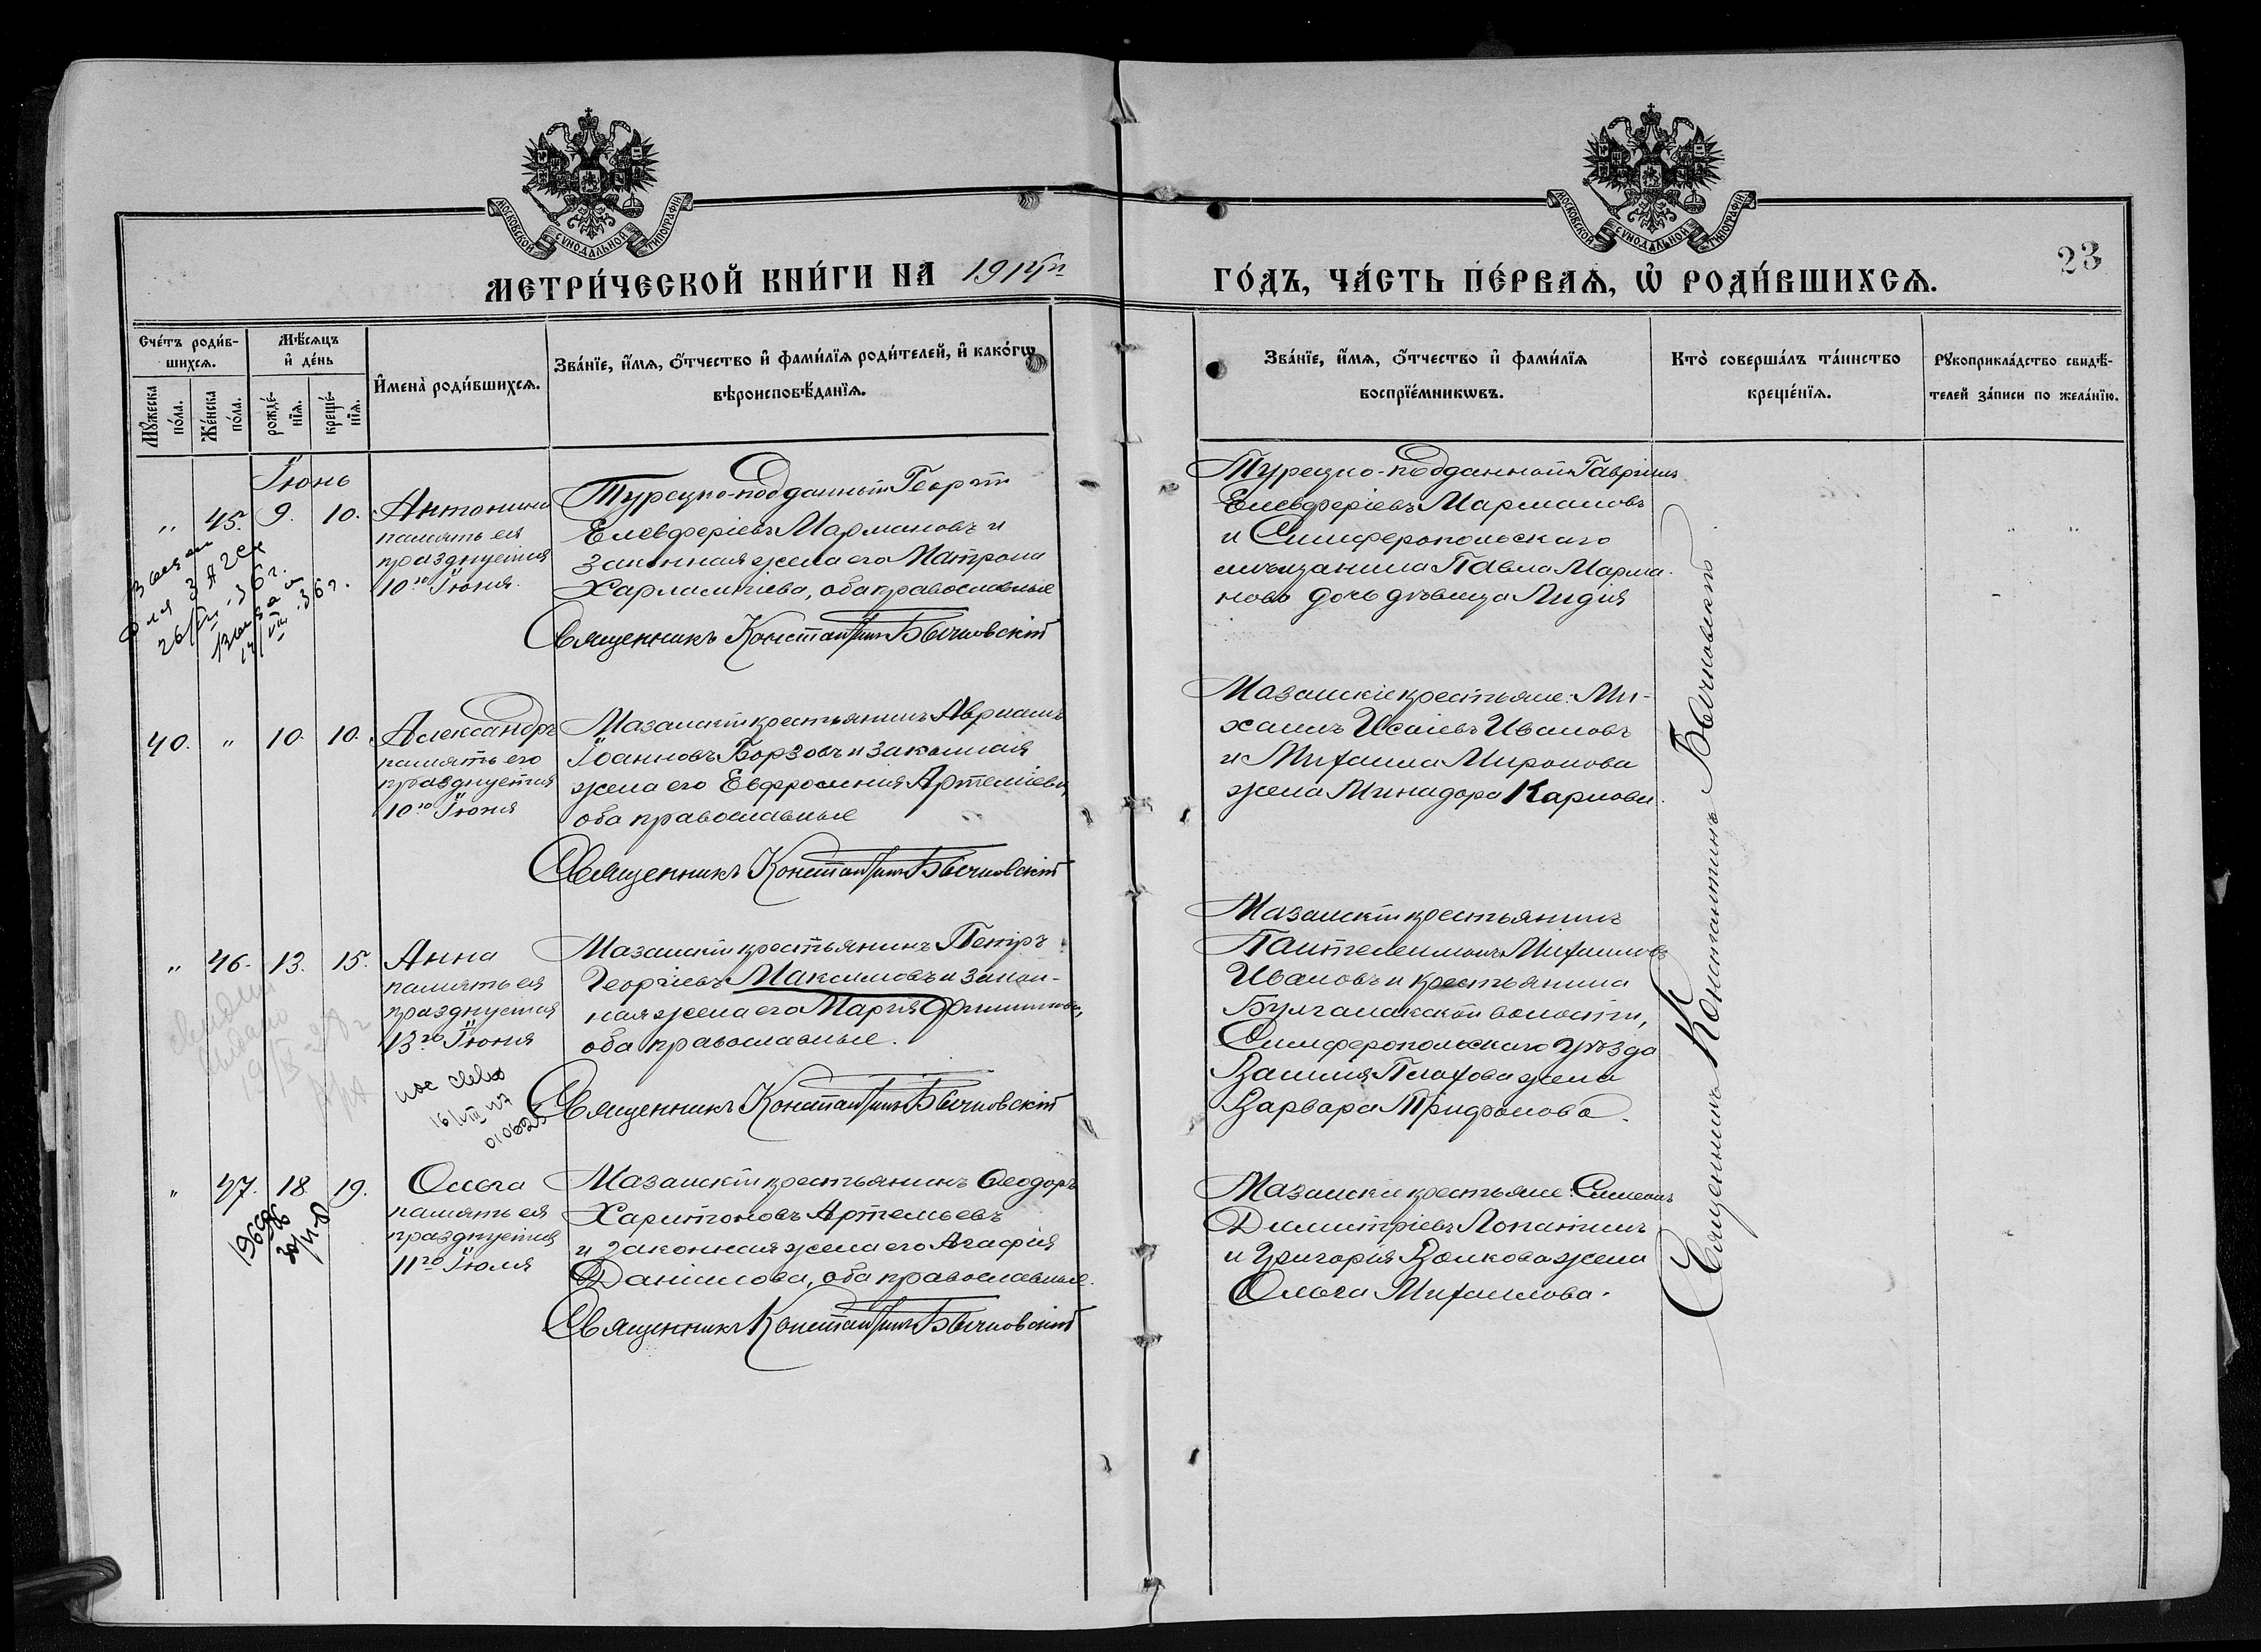 МОСКОВСКОЙ СѴНОДАЛЬНОЙ ТИПОГРАФІИ
МОСКОВСКОЙ СѴНОДАЛЬНОЙ ТИПОГРАФІИ
23
МЕТРИ́ЧЕСКОЙ КНИ́ГИ НА 1914й ГО́ДЪ, ЧА́СТЬ ПЕ́РВАѦ, Ѡ҆ РОДИ́ВШИХСѦ.
Сче́тъ роди́в-
шихсѧ.
Мѣ́сѧцъ
и҆ де́нь
Мꙋ́жеска по́ла.
Же́нска по́ла.
рожде́-
нїѧ.
креще́-
нїѧ.
И҆мена̀ роди́вшихсѧ.
Зва́нїе, и҆́мѧ, ѻ҆́тчество и҆ фами́лїѧ роди́телей, и҆ како́гѡ
вѣроисповѣ́данїѧ.
Зва́нїе, и҆́мѧ, ѻ҆́тчество и҆ фами́лїѧ
воспрїе́мникѡвъ.
Кто̀ соверша́лъ та́инство
креще́нїѧ.
Рꙋкоприкла́дство свидѣ́-
телей за́писи по жела́нїю.
Іюнь
" 45. 9. 10.
Антонина
память ея
празднуется
10го Іюня.
Турецко-подданный Георгій
Елевферіевъ Мармановъ и
законная жена его Матрона
Харлампіева, оба православные
Священникъ Константинъ Бычковскій
Турецко-подданный Гавріилъ
Елевферіевъ Мармановъ
и Симферопольскаго
мѣщанина Павла Марма-
нова дочь дѣвица Лидія
26/ 36 г.
17/VII 36 г.
40. " 10. 10.
Александръ
память его
празднуется
10го Іюня
Мазанскій крестьянинъ Авраамъ
Іоанновъ Борзовъ и законная
жена его Евфросинія Артеміева,
оба православные
Священникъ Константинъ Бычковскій
Мазанскіе крестьяне: Ми-
хаилъ Исаіевъ Ивановъ
и Михаила Миронова
жена Минадора Карпова.
" 46. 13. 15.
Анна
память ея
празднуется
13го Іюня
Мазанскій крестьянинъ Петръ
Георгіевъ Максимовъ и закон-
ная жена его Марія Филиппова,
оба православные.
Священникъ Константинъ Бычковскій
Мазанскій крестьянинъ
Пантелеимонъ Михаиловъ
Ивановъ и крестьянина
Булганакской волости,
Симферопольскаго уѣзда
Василія Плахова жена
Варвара Трифонова.
16/VIII 47
" 47. 18. 19.
Ольга
память ея
празднуется
11го Іюля
Мазанскій крестьянинъ Ѳеодоръ
Харитоновъ Артемьевъ
и законная жена его Агафія
Даніилова, оба православные.
Священникъ Константинъ Бычковскій
Мазанскіе крестьяне: Симеонъ
Димитріевъ Лопатинъ
и Григорія Волкова жена
Ольга Михаилова.
Священникъ Константинъ Бычковскій